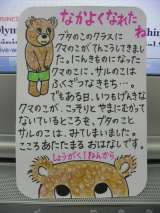 なかよくなれたね
ブタのこのクラスに
クマのこがてんこうしてきまし
た。にんきものになった
クマのこに、サルのこは
ふくざつなきもち…。
でもある日、いつもげんきな
クマのこが、こっそりやまにむかって
ないているところを、ブタのこと
サルのこは、みてしまいました。
こころあたたまる おはなしです。
しょうがく1ねんから